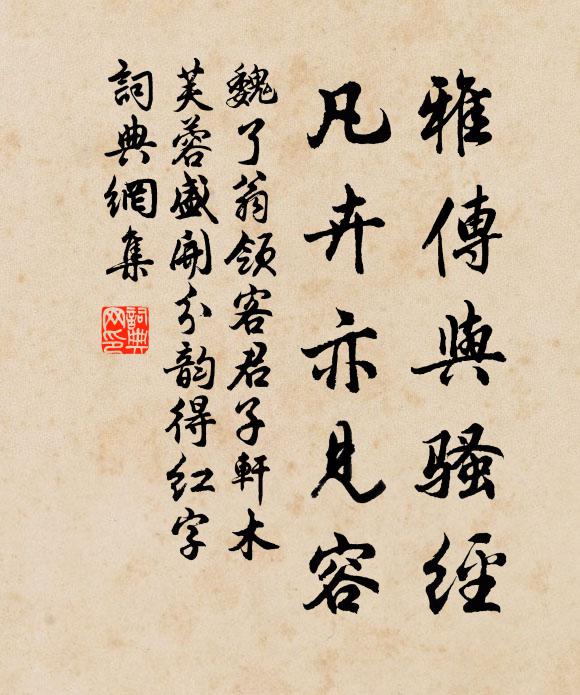 雅傳與騷經
凡卉亦見容
魏了翁領客君子軒木
芙蓉盛開分韵得紅字
詞典網集
詞典网印